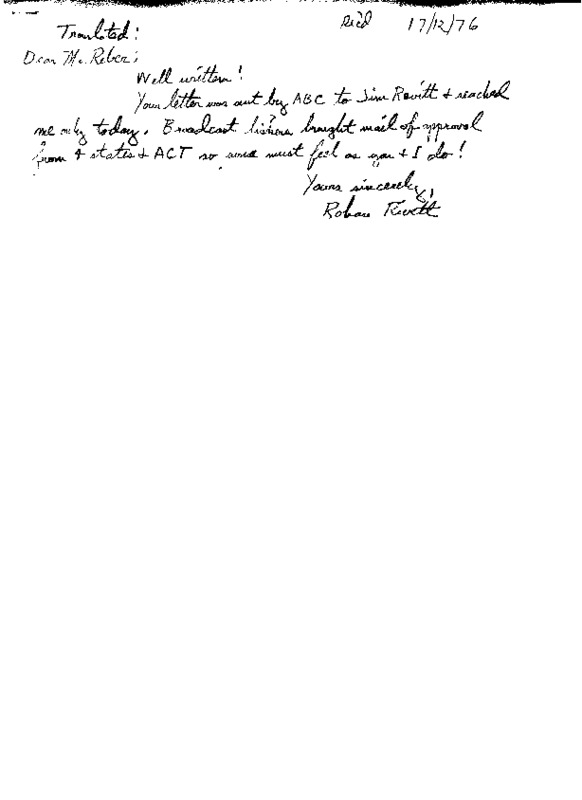 Rec'd 17/12/76
Translated:
Dear Mr. Reber;
Well written!
Your letter was sent by ABC to Jim Revitt & reached
me only today. Broadcast brought mail of approval
from 4 states & ACT so some must feel as you & I do!
Yours sincerely,
Rohan Rivett